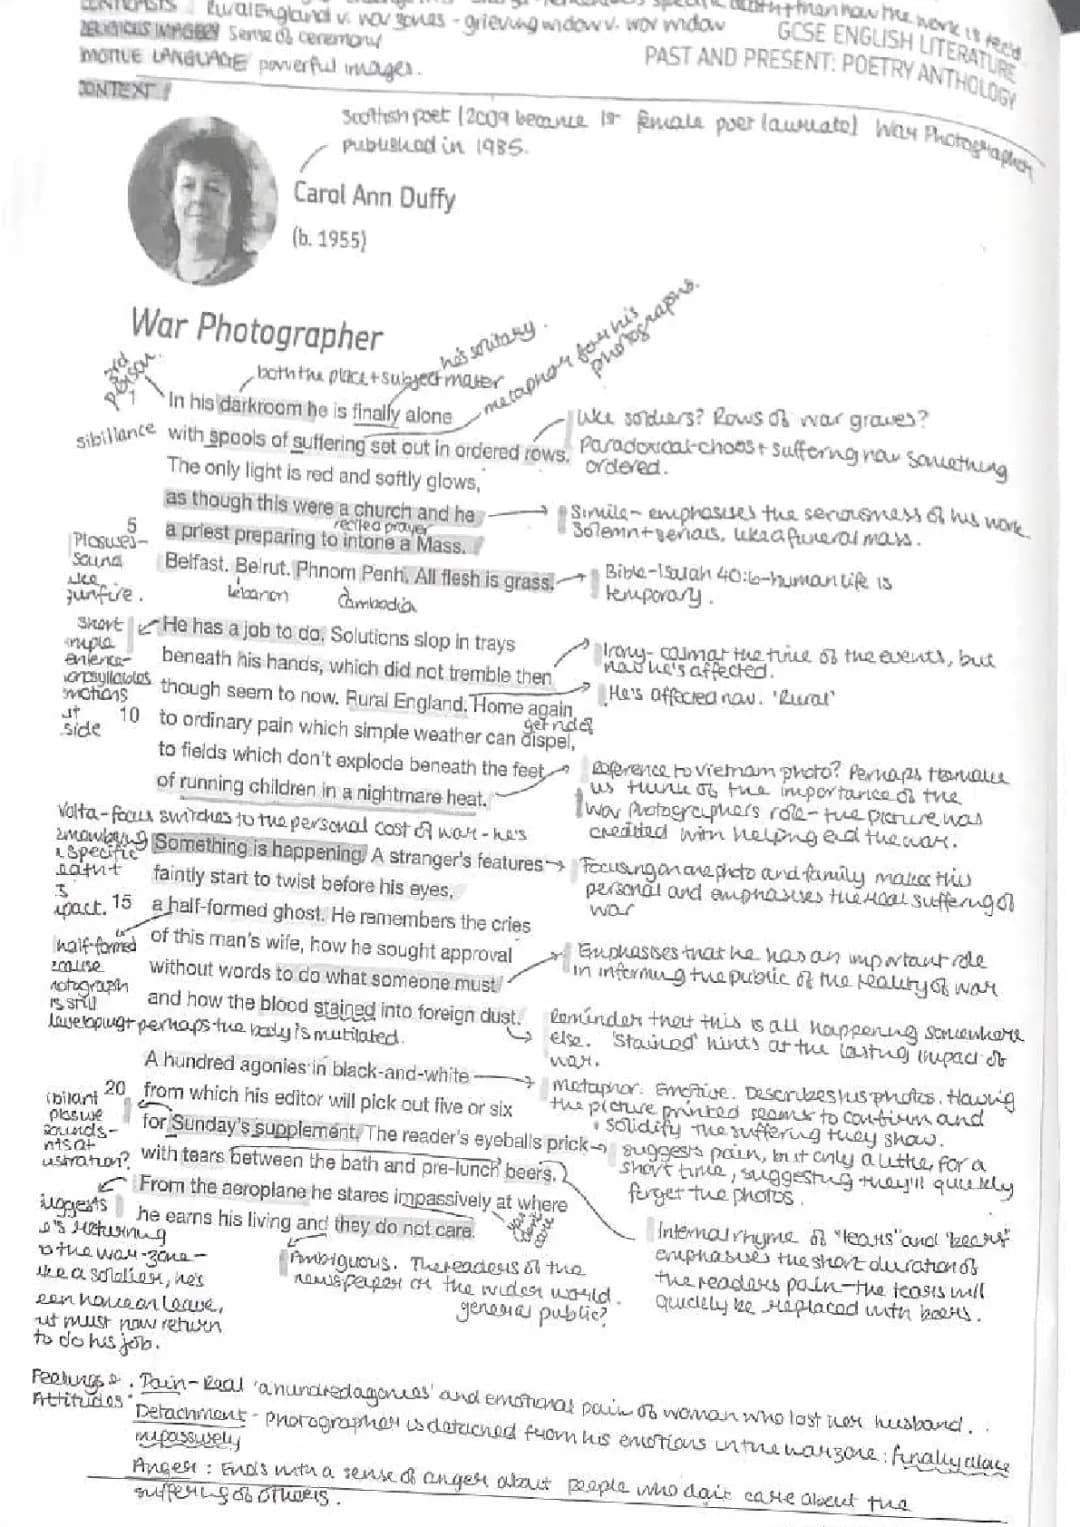 CONTEXT!
Rural England v. war zones - grieving widow v. war widow
GCSE ENGLISH LITERATURE
RELIGIOUS IMAGERY Sense of ceremony
PAST AND PRESENT: POETRY ANTHOLOGY
EMOTIVE LANGUAGE powerful images.
Scottish poet (2009 became 1st female poet laureate) War Photographer
published in 1985.
Carol Ann Duffy
(b. 1955)
War Photographer
3rd person
both the place + subject matter
he's solitary.
metaphor for his photographs.
1
In his darkroom he is finally alone
sibillance
with spools of suffering set out in ordered rows.
Like soldiers? Rows of war graves?
Paradoxical-chaos + suffering now something
ordered.
The only light is red and softly glows,
as though this were a church and he
Simile - emphasises the seriousness of his work.
Solemn + serious, like a funeral mass.
recited prayer
5
a priest preparing to intone a Mass.
Plosives-
sound
like
gunfire.
Belfast. Beirut. Phnom Penh. All flesh is grass.
Lebanon
Cambodia
Bible-Isaiah 40:6-human life is
temporary.
He has a job to do. Solutions slop in trays
beneath his hands, which did not tremble then
Irony- calm at the time of the events, but
now he's affected.
though seem to now. Rural England. Home again
He's affected now. 'Rural'
get rid of
10
to ordinary pain which simple weather can dispel,
to fields which don't explode beneath the feet
of running children in a nightmare heat.
Reference to Vietnam photo? Perhaps to make
us think of the importance of the
war photographers role - the picture was
credited with helping end the war.
Volta-focus switches to the personal cost of war - he's
Something is happening. A stranger's features
faintly start to twist before his eyes,
Focusing on one photo and family makes this
personal and emphasises the real suffering of
war
15
a half-formed ghost. He remembers the cries
of this man's wife, how he sought approval
without words to do what someone must
Emphasises that he has an important role
in informing the public of the reality of war
and how the blood stained into foreign dust.
half-formed
is still
developing + perhaps the body is mutilated.
Reminder that this is all happening somewhere
else. 'Stained' hints at the lasting impact of
war.
A hundred agonies in black-and-white
20
from which his editor will pick out five or six
Metaphor. Emotive. Describes his photos. Having
the picture printed seems to confirm and
solidify the suffering they show.
for Sunday's supplement. The reader's eyeballs prick
with tears between the bath and pre-lunch beers.
suggests pain, but only a little, for a
short time, suggesting they'll quickly
forget the photos.
From the aeroplane he stares impassively at where
he earns his living and they do not care.
Ambiguous. The readers of the
newspaper or the wider world.
general public?
Internal rhyme of "tears" and "beers"
emphasises the short duration of
the readers pain - the tears will
quickly be replaced with beers.
like a soldier, he's
to do his job.
Feelings &
Attitudes
Pain - Real 'a hundred agonies' and emotional pain of woman who lost her husband.
Detachment - Photographer is detached from his emotions in the warzone: finally alone
impassively
Anger: Ends with a sense of anger about people who don't care about the
suffering of others.